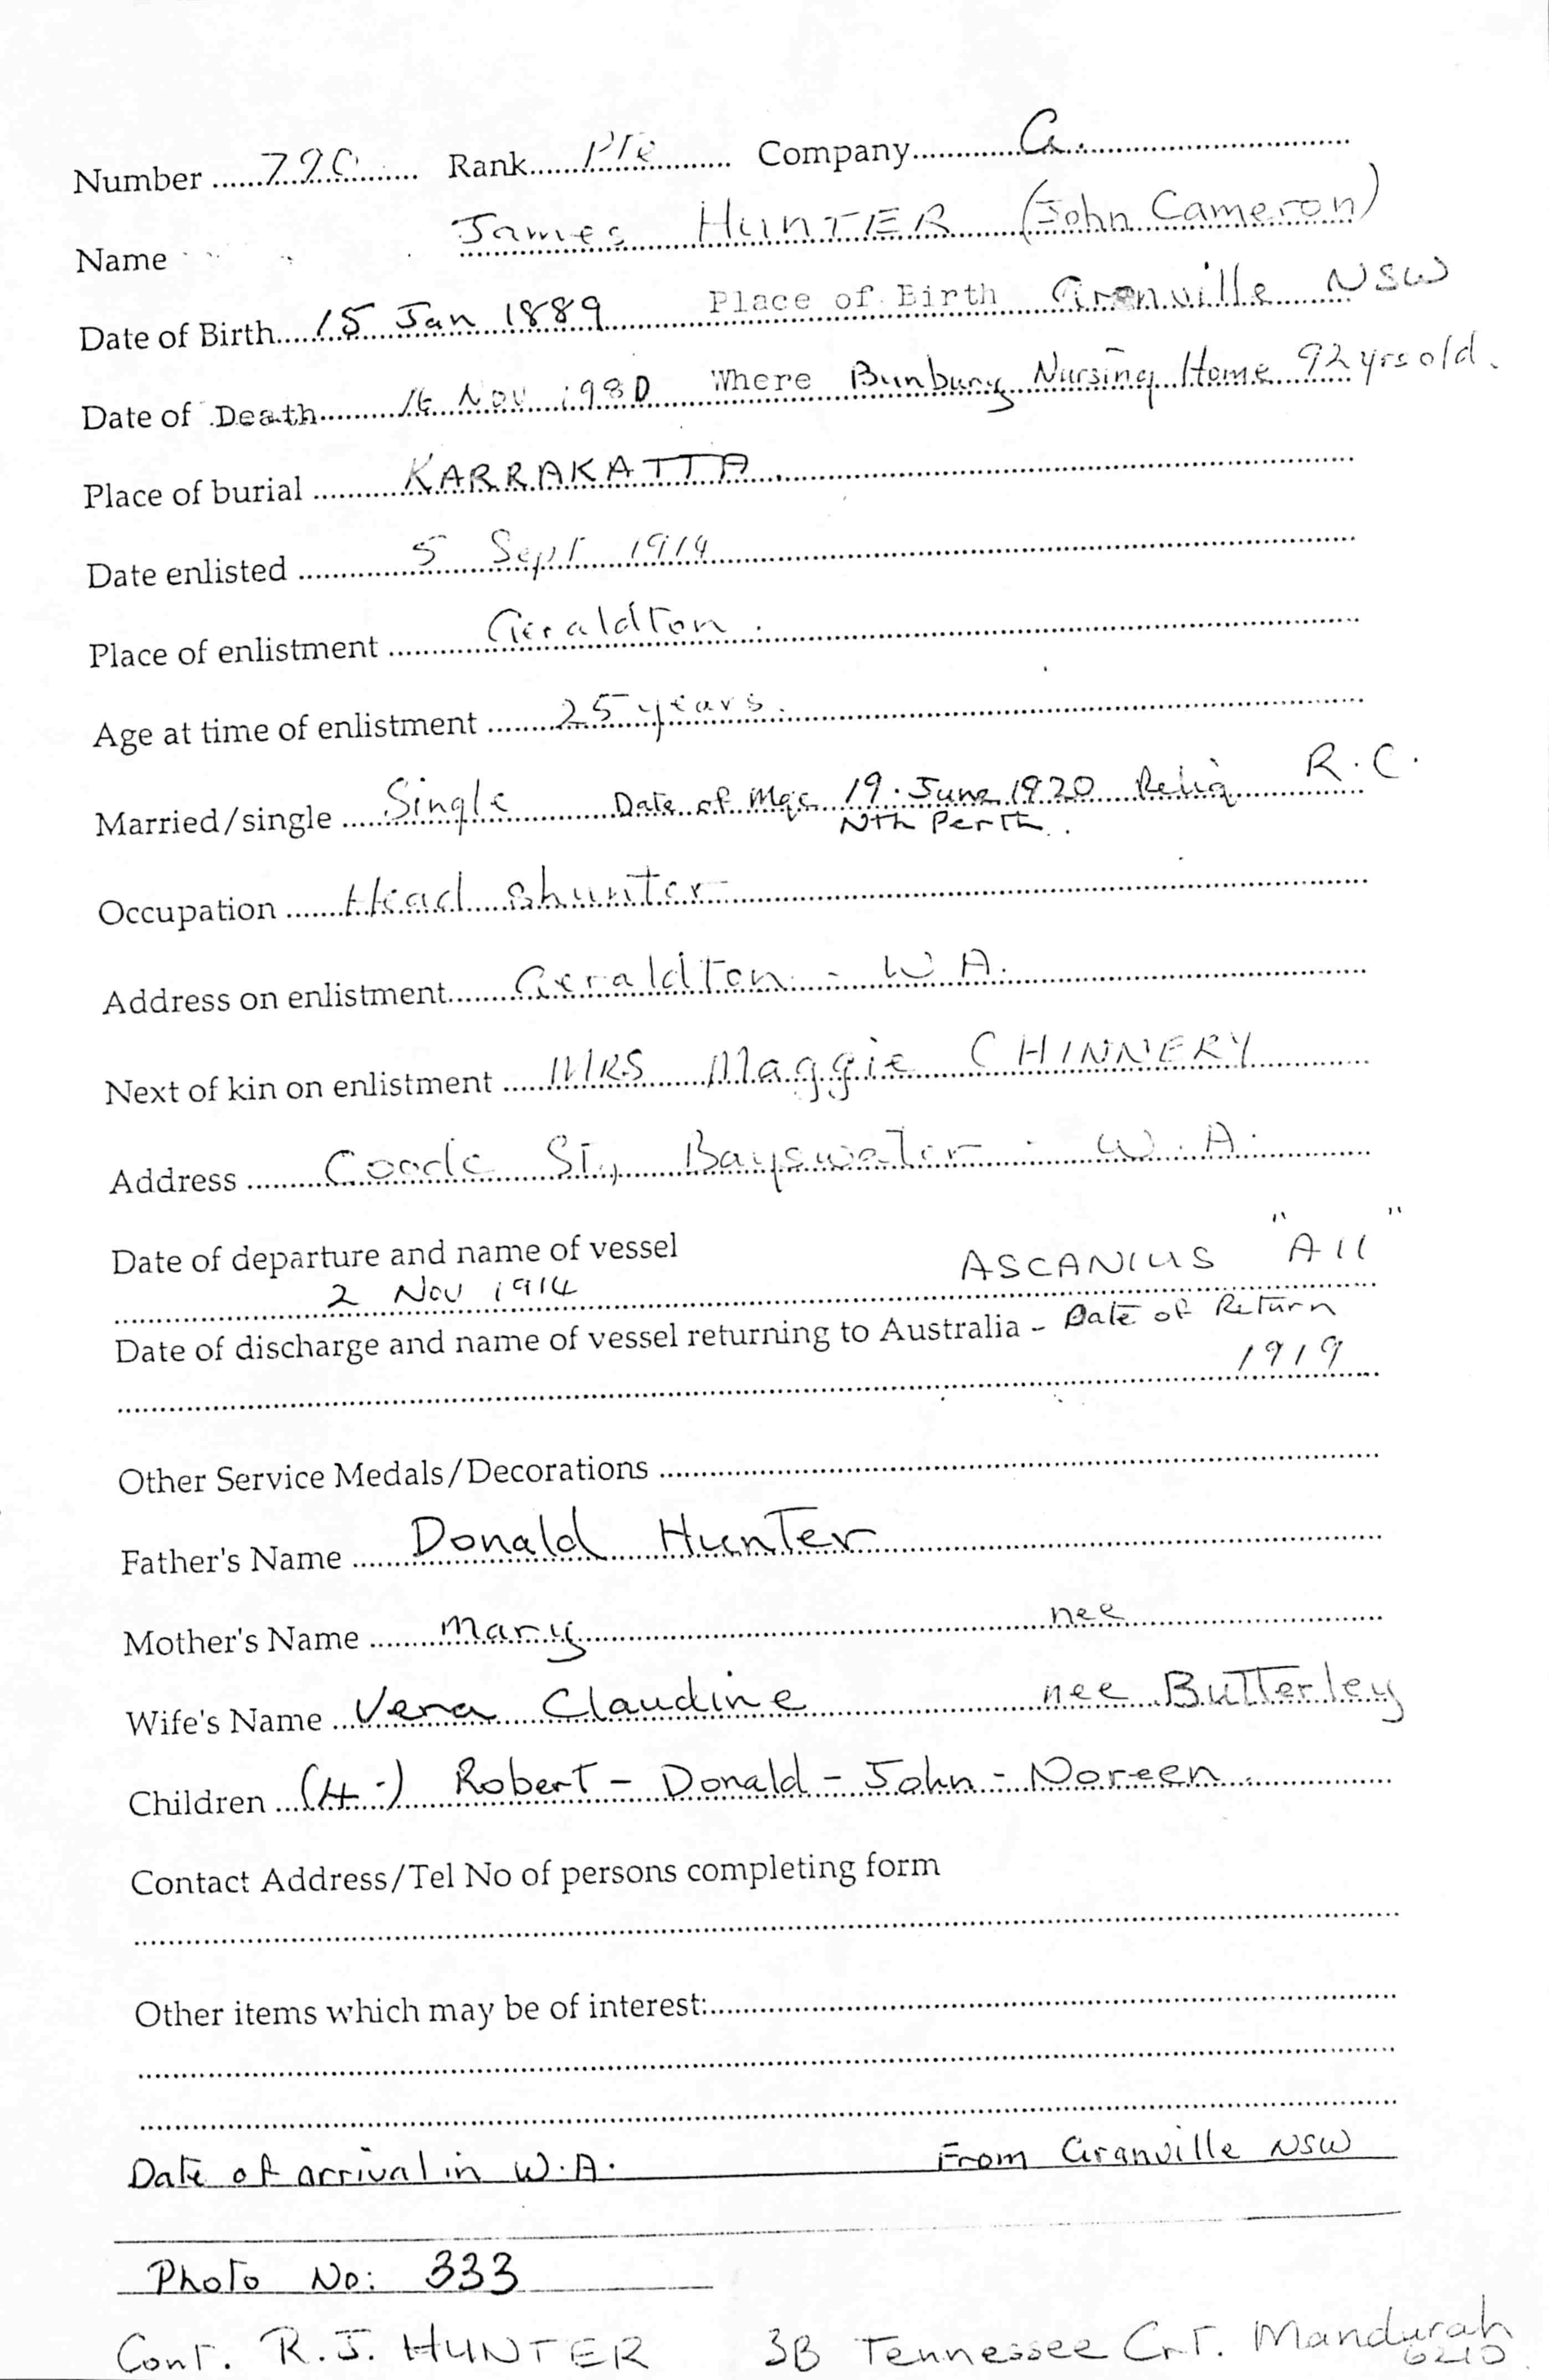 Number ...... ...... Rank...... Pte ...... Company...... G. ......
Name James HUNTER (John Cameron)
Date of Birth...... 15 Jan 1889 ...... Place of Birth Granville NSW
Date of Death...... Nov 1980 Where Bunbury Nursing Home 92 yrs old.
Place of burial ...... KARRAKATTA ......
Date enlisted ...... 5 Sept 1914 ......
Place of enlistment ...... Geraldton. ......
Age at time of enlistment ...... 25 years. ......
Married/single ...... Single ...... Date of Mge 19. June 1920 Relig R.C.
Nth Perth.
Occupation ...... Head shunter ......
Address on enlistment...... Geraldton - W.A. ......
Next of kin on enlistment ...... MRS Maggie CHINNERY ......
Address ...... Coode St., Bayswater - W.A. ......
Date of departure and name of vessel
2 Nov 1914 ...... ASCANIUS "A11"
Date of discharge and name of vessel returning to Australia - Date of Return
...... 1919
Other Service Medals/Decorations ......
Father's Name ...... Donald Hunter ......
Mother's Name ...... Mary ...... nee ......
Wife's Name ... Vera Claudine ...... nee Butterley
Children ... (4-) Robert - Donald - John - Noreen ......
Contact Address/Tel No of persons completing form
Other items which may be of interest:......
Date of arrival in W.A. From Granville NSW
Photo No: 333
Cont. R.J. HUNTER 3B Tennessee Crt. Mandurah
6210